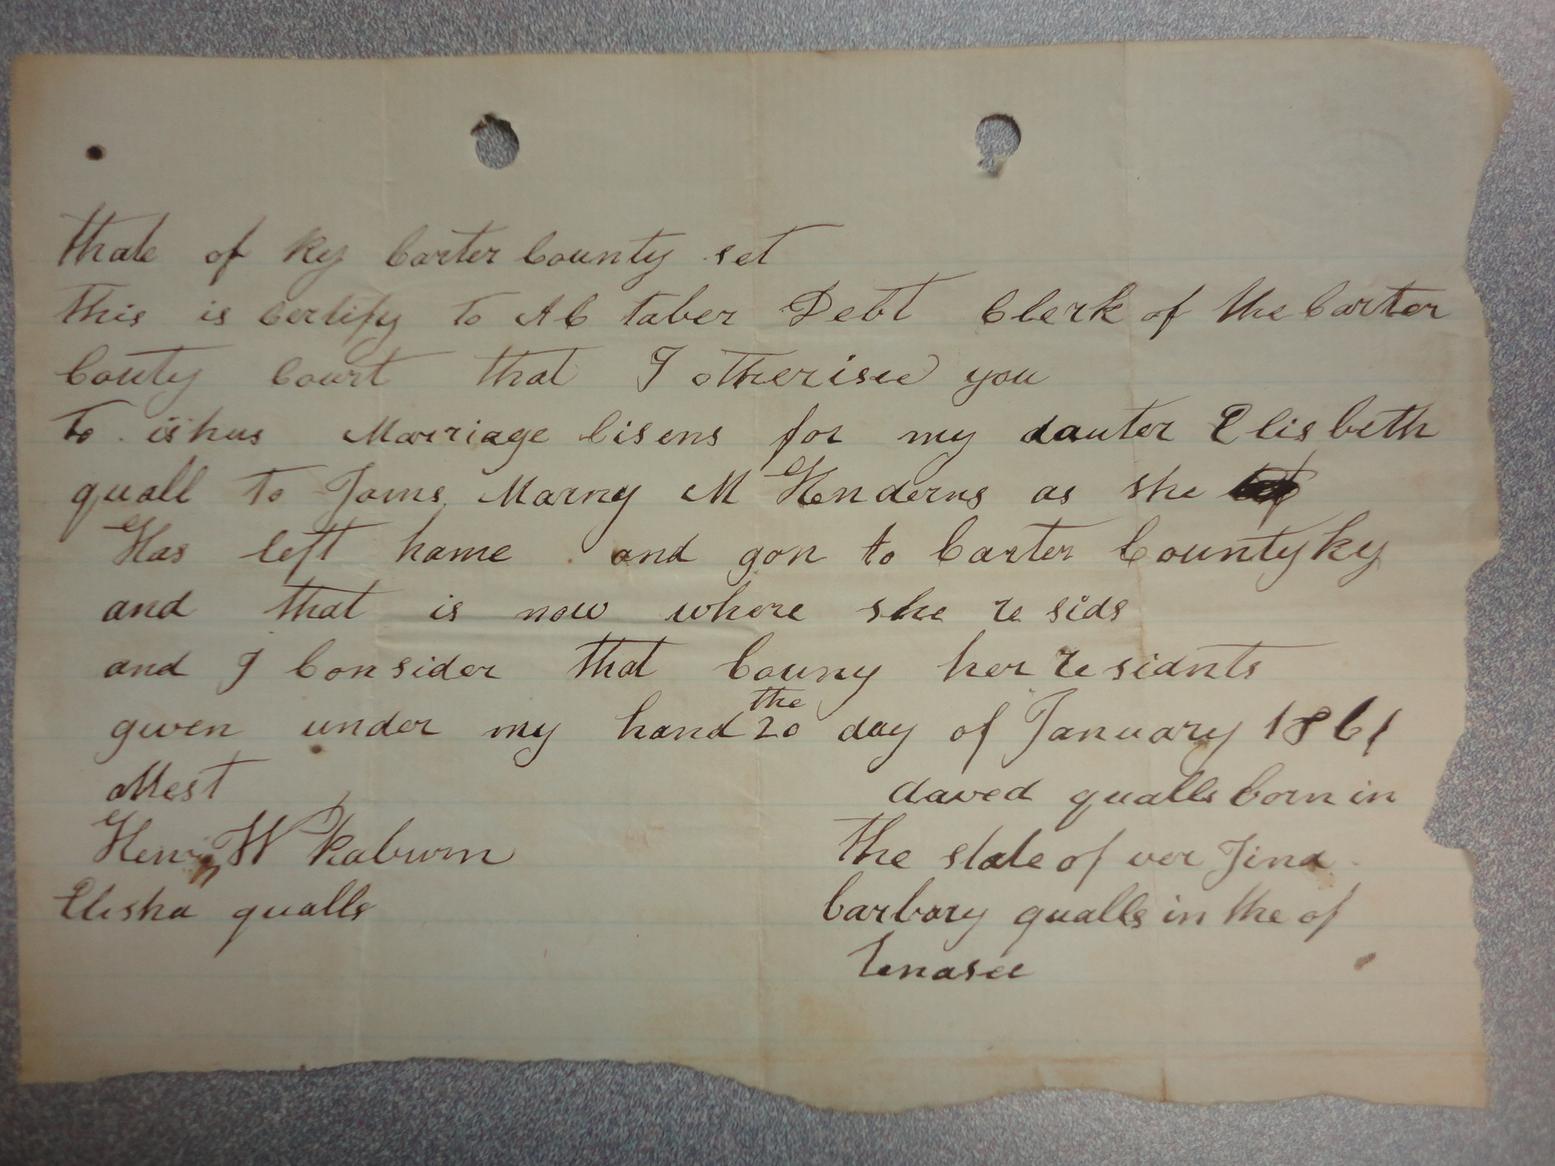 thate of Ky Carter County set
this is Certify to A C taber Debt Clerk of the Carter
Couty Court that I otherisee you
to ishus Marriage lisens for my dauter Elisbeth
quall to Jams Marny M Henderns as she
Has left hame and gon to Carter County ky
and that is now where she re sids
and I Consider that Couny her re sidnts
given under my hand the 20 day of January 1861
Attest daved qualls born in
Henry W Raburn the state of ver Jina
Elisha qualls barbary qualls in the of
tenasee